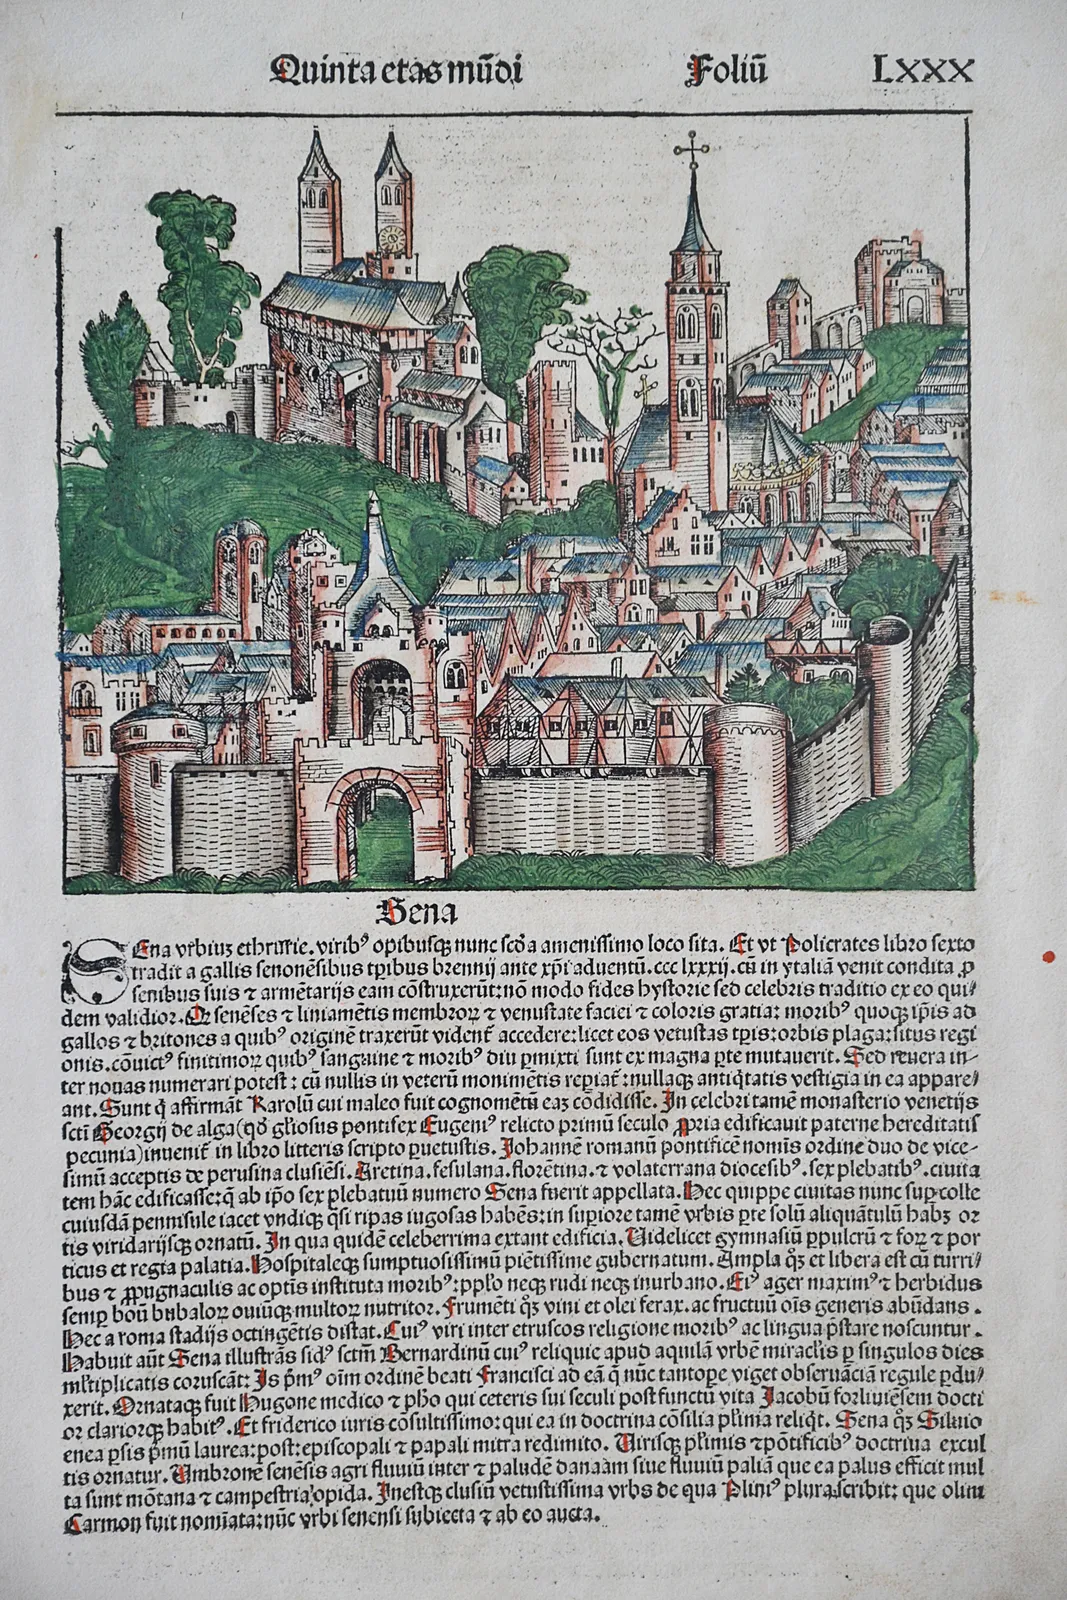 Quinta etas mūdi Foliū LXXX
Sena
SEna vrbiuʒ ethrurie. viribꝰ opibusqꝫ nunc scd̄a amenissimo loco sita. Et vt Policrates libro sexto
tradit a gallis senonēsibus tp̄ibus brennij ante xp̄i aduentū. ccc lxxxij. cū in ytaliā venit condita ꝓ
senibus suis ⁊ armētarijs eam cōstruxerūt: nō modo fides hystorie sed celebris traditio ex eo qui/
dem validior. Qꝫ senēses ⁊ liniamētis membroꝝ ⁊ venustate faciei ⁊ coloris gratia: moribꝰ quoqꝫ ip̄is ad
gallos ⁊ britones a quibꝰ originē traxerūt vident̄ accedere: licet eos vetustas tp̄is: orbis plaga: situs regi
onis. cōuictꝰ finitimoꝝ quibꝰ sanguine ⁊ moribꝰ diu ꝑmixti sunt ex magna ꝑte mutauerit. Sed reuera in-
ter nouas numerari potest: cū nullis in veterū monimētis reꝑiat̄: nullaqꝫ antiq̄tatis vestigia in ea appare/
ant. Sunt q̄ affirmāt Karolū cui maleo fuit cognomētū eaʒ cōdidisse. In celebri tamē monasterio venetijs
sctī Georgij de alga (qd̄ gl̄iosus pontifex Eugeniꝰ relicto primū seculo ꝓpria edificauit paterne hereditatis
pecunia) inuenit̄ in libro litteris scripto ꝑuetustis. Johannē romanū pontificē nomīs ordine duo de vice-
simū acceptis de perusina clusiēsi. Aretina. fesulana. florētina. ⁊ volaterrana diocesibꝰ. sex plebatibꝰ. ciuita
tem hāc edificasse: q̄ ab ip̄o sex plebatuū numero Sena fuerit appellata. Hec quippe ciuitas nunc suꝑ colle
cuiusdā penīsule iacet vndiqꝫ q̄si ripas iugosas habēs: in suꝑiore tamē vrbis ꝑte solū aliquātulū habʒ or
tis viridarijsqꝫ ornatū. In qua quidē celeberrima extant edificia. Uidelicet gymnasiū ꝑpulcrū ⁊ foꝝ ⁊ por
ticus et regia palatia. Hospitaleqꝫ sumptuosissimū piētissime gubernatum. Ampla qʒ et libera est cū turri/
bus ⁊ ꝓpugnaculis ac optīs instituta moribꝰ: pp̄lo neqꝫ rudi neqꝫ inurbano. Eiꝰ ager maximꝰ ⁊ herbidus
semꝑ boū bubaloꝝ ouiūqꝫ multoꝝ nutritor. Frumēti qʒ vini et olei ferax. ac fructuū oīs generis abūdans.
Hec a roma stadijs octingētis distat. Cuiꝰ viri inter etruscos religione moribꝰ ac lingua p̄stare noscuntur.
Habuit aūt Sena illustrās sidꝰ sctm̄ Bernardinū cuiꝰ reliquie apud aquilā vrbē miracl̄is ꝑ singulos dies
ml̄tiplicatis coruscāt: Is pm̄ꝰ oīm ordinē beati Francisci ad eā q̄ nūc tantoꝑe viget obseruāciā regule ꝑdu/
xerit. Ornataqꝫ fuit Hugone medico ⁊ ph̄o qui ceteris sui seculi post functū vita Jacobū forliuiēsem docti
or clariorqꝫ habitꝰ. Et friderico iuris cōsultissimo: qui ea in doctrina cōsilia pl̄ima reliq̄t. Sena qʒ Siluio
enea p̄sīs pm̄ū laurea: post: episcopali ⁊ papali mitra redimito. Uirisqꝫ pl̄imis ⁊ pōtificibꝰ doctrina excul
tis ornatur. Umbronē senēsis agri fluuiū inter ⁊ paludē danaām siue fluuiū paliā que ea palus efficit mul
ta sunt mōtana ⁊ campestria opida. Inestqꝫ clusiū vetustissima vrbs de qua Pliniꝰ plura scribit: que olim
Carmon fuit nomīata: nūc vrbi senensi subiecta ⁊ ab eo aucta.